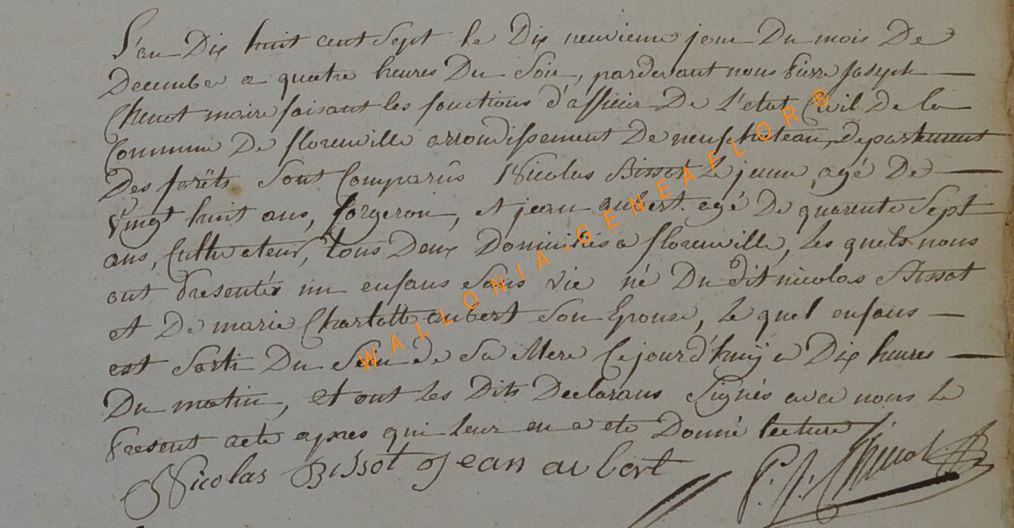 L'an Dix huit cent Sept le Dix neuvieme jour Du mois De
Decembre a quatre heures Du Soir, pardevant nous Pierre Joseph
Chenot maire faisant les fonctions d'afficier De L'etat Civil de la
Commune De florenville arrondissement De neufchateau, departement
Des forêts Sont Comparûs Nicolas Bissot Le jeune, agé De
Vingt huit ans, forgeron, et jean aubert agé De quarente Sept
ans, Cultivateur, tous Deux Domiciliés a florenville, Les quels nous
ont Presentés un enfans Sans vie né Du dit nicolas Bissot
et De marie Charlotte aubert Son Epouse, Le quel enfans
est Sorti Du Sein de Sa Mere Cejourd'huy a Dix heures
Du matin, et ont Les Dits Declarans Signés avec nous Le
Present acte apres qui leur en a eté Donné lecture
Nicolas Bissot Jean aubert P. J. Chenot
WALLONIA-GENEAFLOR®